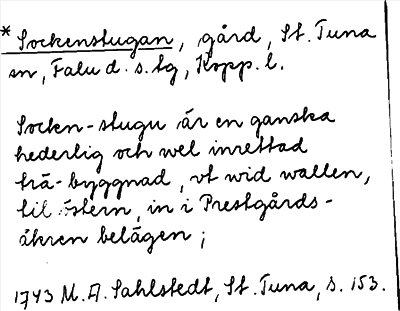 * Sockenstugan, gård, St. Tuna
sn, Falu d. s. tg, Kopp. l.
Socken-stugu är en ganska
hederlig och wel inrettad
trä-byggnad, vt wid wallen,
til östern, in i Prestgårds-
åkren belägen;
1743 M. A. Sahlstedt, St. Tuna, s. 153.